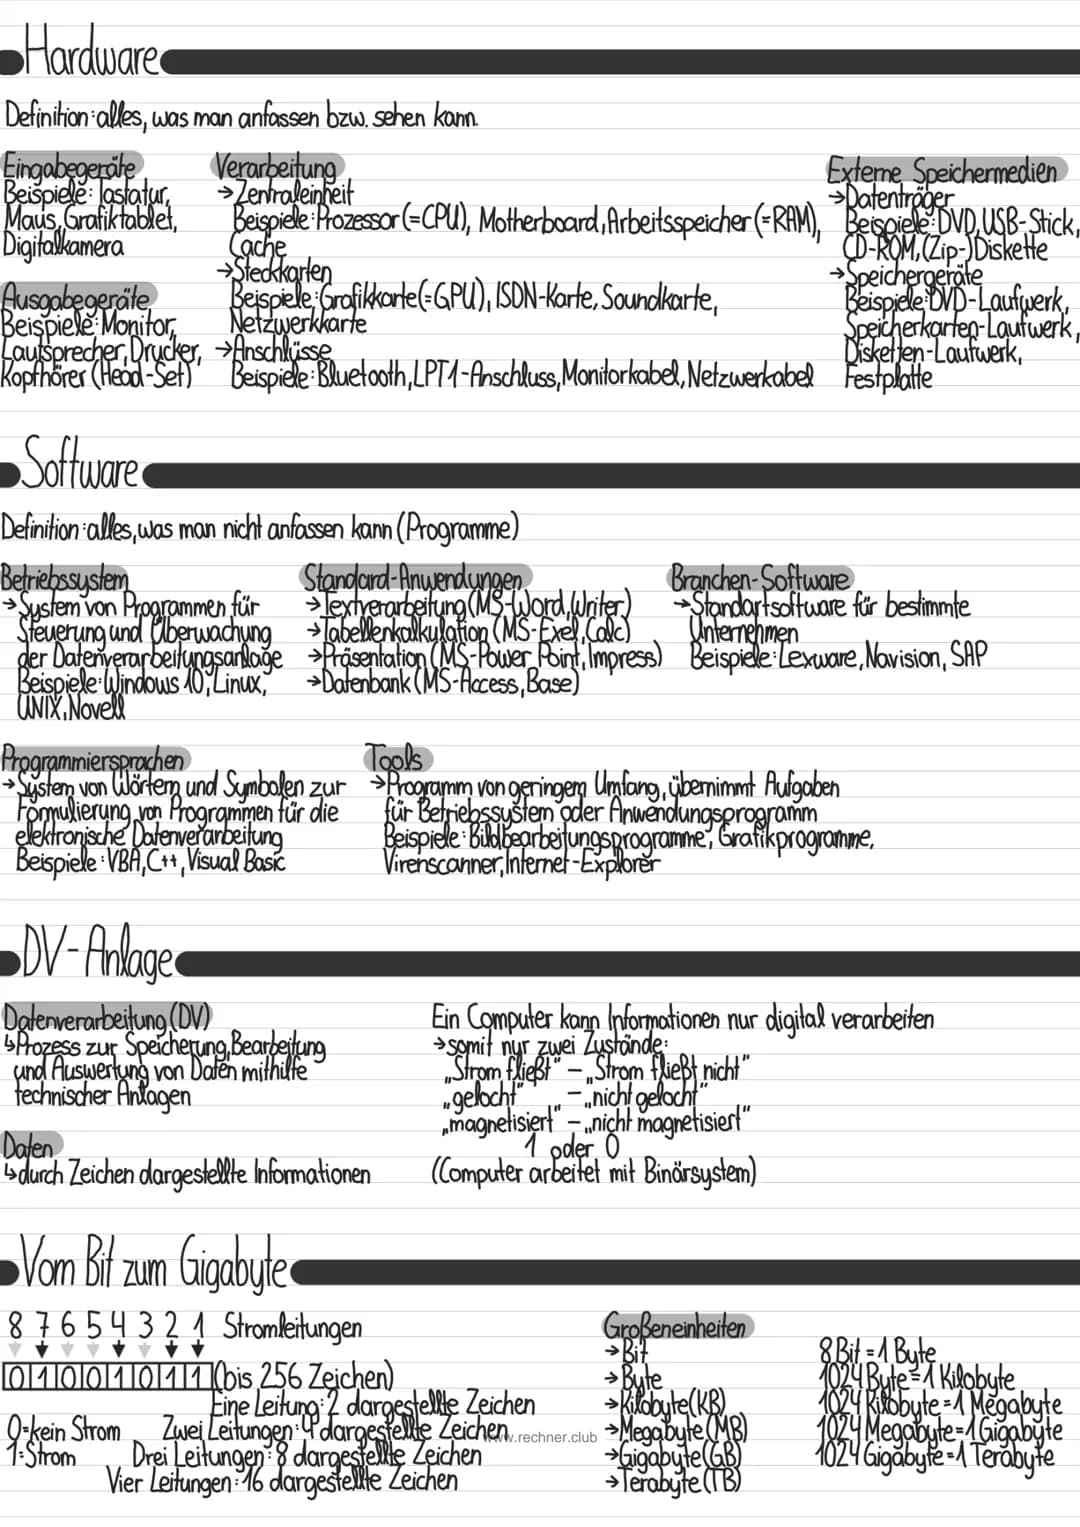 Hardware
Definition: alles, was man anfassen bzw. sehen kann.
Eingabegeräte
Beispiele: Tastatur,
Maus, Grafiktablet,
Digitalkamera
Ausgabegeräte
Beispiele: Monitor,
Lautsprecher, Drucker,
Kopfhörer (Head-Set)
Verarbeitung
→Zentraleinheit
Beispiele: Prozessor (=CPU), Motherboard, Arbeitsspeicher (=RAM),
Cache
→Steckkarten
Beispiele: Grafikkarte (=GPU), ISDN-Karte, Soundkarte,
Netzwerkkarte
→Anschlüsse
Beispiele: Bluetooth, LPT1-Anschluss, Monitorkabel, Netzwerkabel
Externe Speichermedien
→Datenträger
Beispiele: DVD, USB-Stick,
CD-ROM, (Zip-)Diskette
→Speichergeräte
Beispiele: DVD-Laufwerk,
Speicherkarten-Laufwerk,
Disketten-Laufwerk,
Festplatte
Software
Definition: alles, was man nicht anfassen kann (Programme)
Betriebssystem
→System von Programmen für
Steuerung und Überwachung
der Datenverarbeitungsanlage
Beispiele: Windows 10, Linux,
UNIX, Novell
Standard-Anwendungen
→Textverarbeitung (MS-Word, Writer)
→Tabellenkalkulation (MS-Exel, Calc)
→Präsentation (MS-Power Point, Impress)
→Datenbank (MS-Access, Base)
Branchen-Software
→Standartsoftware für bestimmte
Unternehmen
Beispiele: Lexware, Navision, SAP
Programmiersprachen
→System von Wörtern und Symbolen zur
Formulierung von Programmen für die
elektronische Datenverarbeitung
Beispiele: VBA, C++, Visual Basic
Tools
→Programm von geringem Umfang, übernimmt Aufgaben
für Betriebssystem oder Anwendungsprogramm
Beispiele: Bildbearbeitungsprogramme, Grafikprogramme,
Virenscanner, Internet-Explorer
DV-Anlage
Datenverarbeitung (DV)
↳Prozess zur Speicherung, Bearbeitung
und Auswertung von Daten mithilfe
technischer Anlagen
Daten
↳durch Zeichen dargestellte Informationen
Ein Computer kann Informationen nur digital verarbeiten
→somit nur zwei Zustände:
„Strom fließt" – „Strom fließt nicht"
„gelocht" – „nicht gelocht"
„magnetisiert" – „nicht magnetisiert"
1 oder 0
(Computer arbeitet mit Binärsystem)
Vom Bit zum Gigabyte
8 7 6 5 4 3 2 1 Stromleitungen
0 1 0 0 1 0 1 1 (bis 256 Zeichen)
Eine Leitung: 2 dargestellte Zeichen
0=kein Strom Zwei Leitungen: 4 dargestellte Zeichen
1=Strom Drei Leitungen: 8 dargestellte Zeichen
Vier Leitungen: 16 dargestellte Zeichen
www.rechner.club
Großeneinheiten
→Bit
→Byte
→Kilobyte (KB)
→Megabyte (MB)
→Gigabyte (GB)
→Terabyte (TB)
8 Bit = 1 Byte
1024 Byte = 1 Kilobyte
1024 Kilobyte = 1 Megabyte
1024 Megabyte = 1 Gigabyte
1024 Gigabyte = 1 Terabyte